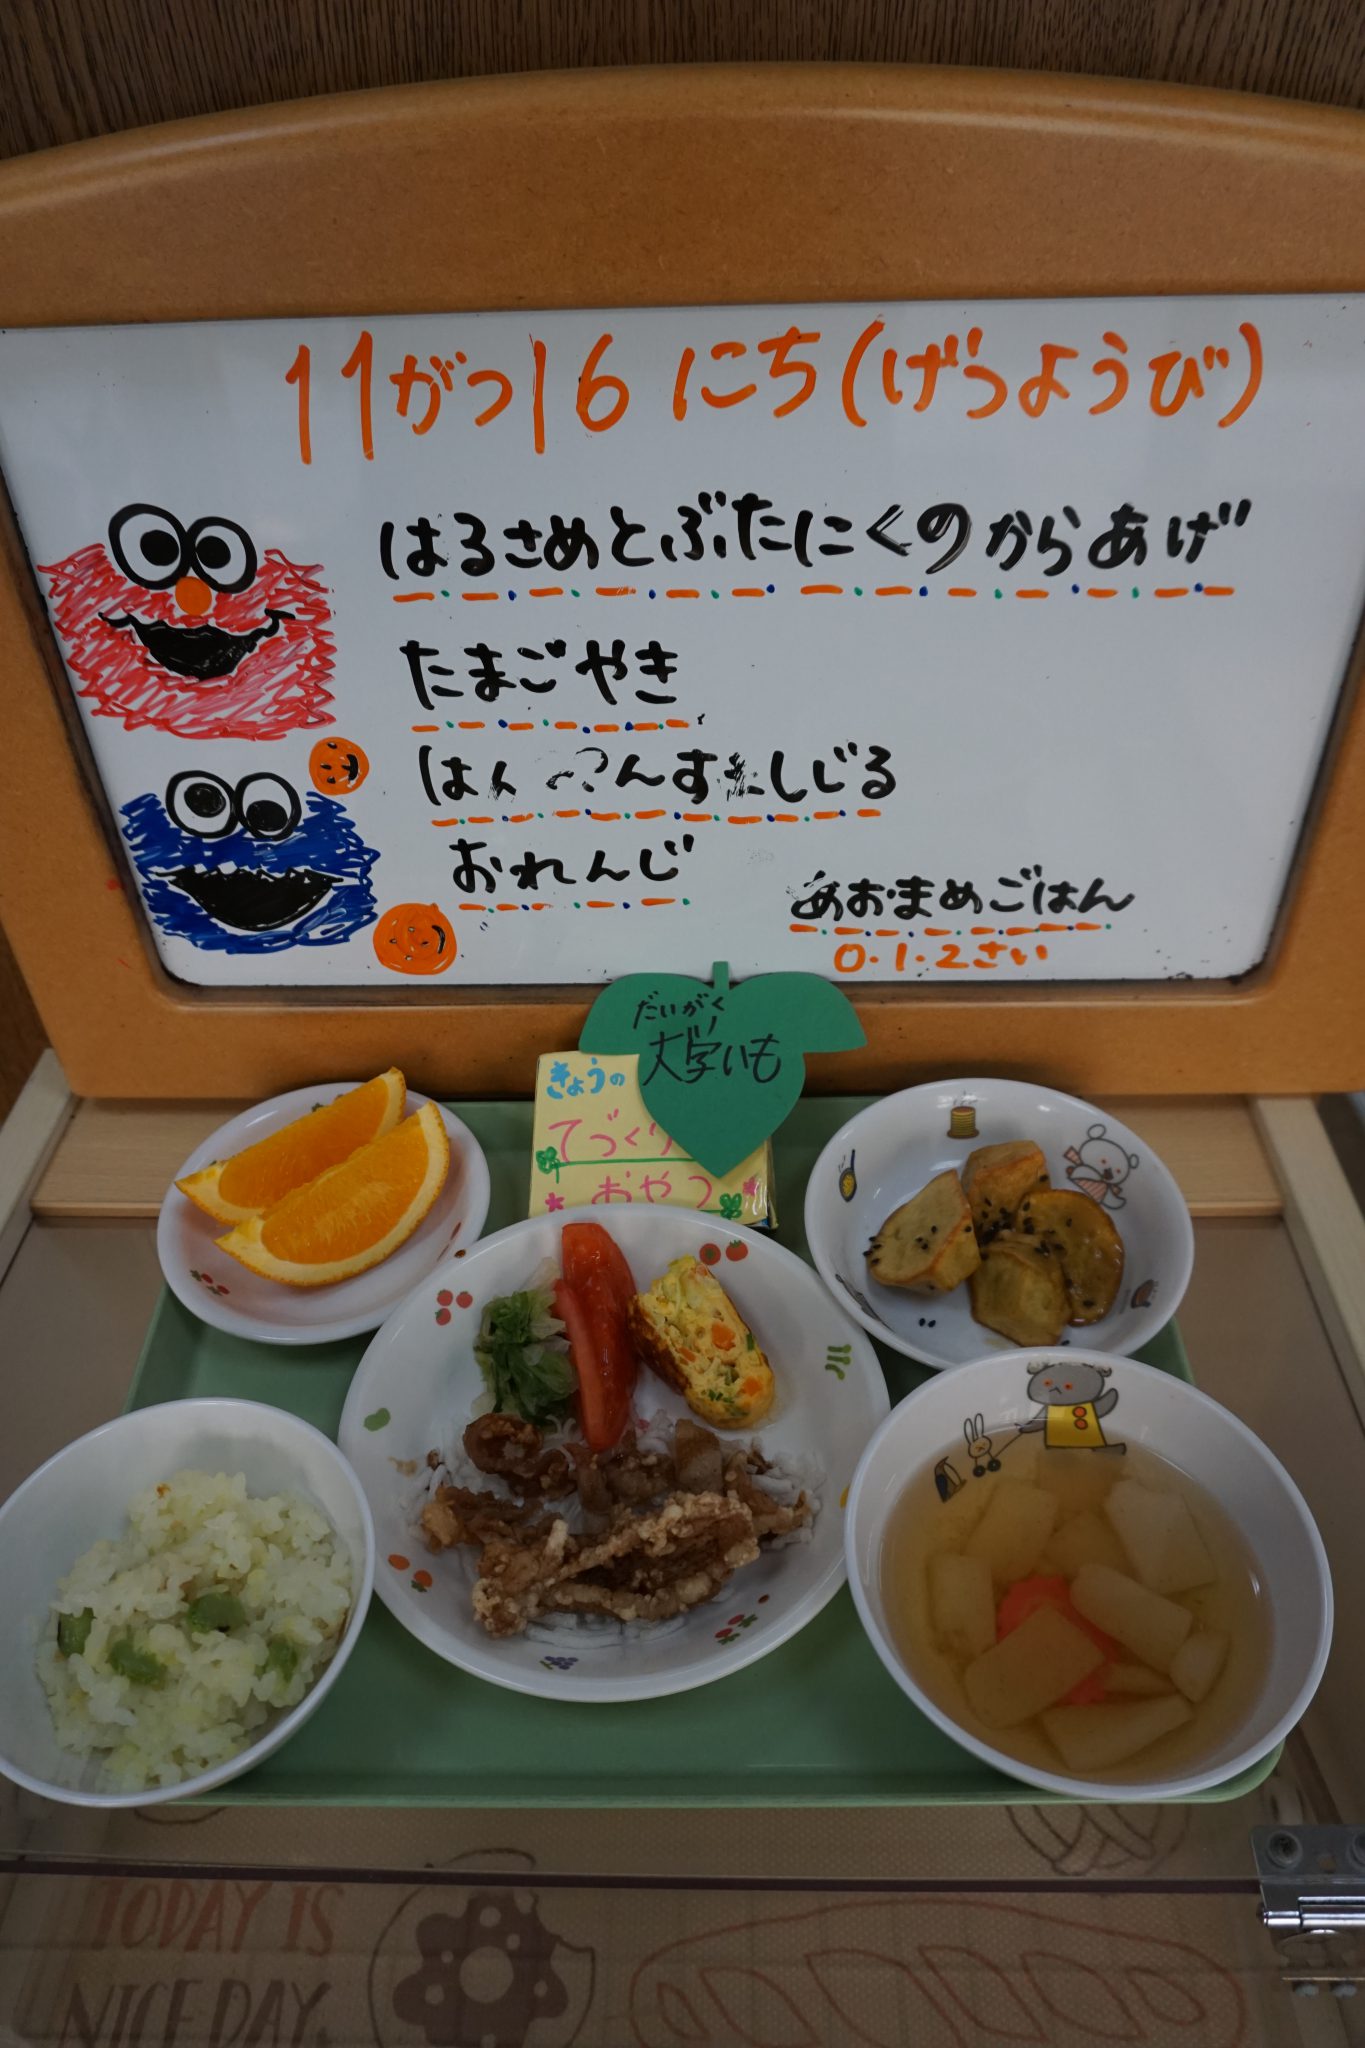 11がつ16にち(げつようび)
はるさめとぶたにくのからあげ
たまごやき
んすましじる
おれんじ
あおまめごはん
0.1.2さい
だいがく
大学いも
きょうの
てづくり
おやつ
TODAY IS
NICE DAY.